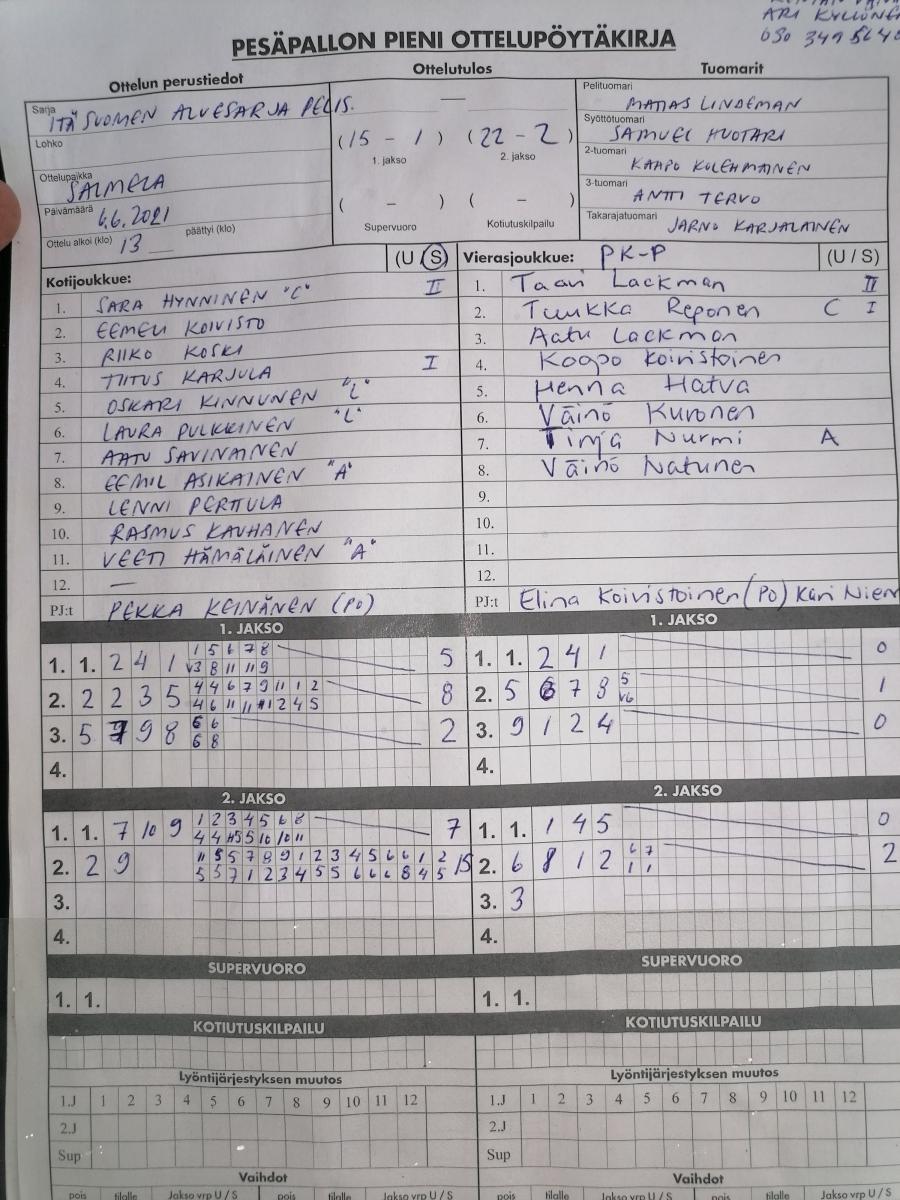 ARI KYLLÖNEN
PESÄPALLON PIENI OTTELUPÖYTÄKIRJA
Ottelun perustiedot
Ottelutulos
Tuomarit
Sarja
ITÄ SUOMEN ALUESARJA PELIS.
—
Pelituomari
MATIAS LINDEMAN
Lohko
(15 - 1) (22 - 2)
1. jakso 2. jakso
Syöttötuomari
SAMUEL HUOTARI
2-tuomari
KAAPO KULEHMAINEN
Ottelupaikka
SALMELA
3-tuomari
ANTTI TERVO
Päivämäärä
6.6.2021
( - ) ( - )
Supervuoro Kotiutuskilpailu
Takarajatuomari
JARNO KARJALAINEN
Ottelu alkoi (klo) 13 päättyi (klo)
Kotijoukkue: (U / S)
1. SARA HYNNINEN "C" II
2. EEMELI KOIVISTO
3. RIIKO KOSKI
4. TIITUS KARJULA I
5. OSKARI KINNUNEN "L"
6. LAURA PULKKINEN "L"
7. AATU SAVINAINEN
8. EEMIL ASIKAINEN "A"
9. LENNI PERTTULA
10. RASMUS KAUHANEN
11. VEETI HÄMÄLÄINEN "A"
12. —
PJ:t PEKKA KEINÄNEN (PO)
Vierasjoukkue: PK-P (U / S)
1. Taavi Lackman II
2. Tuukka Reponen C I
3. Aatu Lackman
4. Kaapo Koivistoinen
5. Henna Hatva
6. Väinö Kuronen
7. Tinja Nurmi A
8. Väinö Natunen
9.
10.
11.
12.
PJ:t Elina Koivistoinen (PO) Kari Niem
1. JAKSO
1. 1. 2 4 1 1 5 6 7 8 5
v3 8 11 11 9
2. 2 2 3 5 4 4 6 7 9 11 1 2 8
4 6 11 11 1 2 4 5
3. 5 9 8 6 6 2
6 8
4.
1. JAKSO
1. 1. 2 4 1 0
2. 5 6 7 8 5 1
v6
3. 9 1 2 4 0
4.
2. JAKSO
1. 1. 7 10 9 1 2 3 4 5 6 8 7
4 4 5 5 10 10 11
2. 2 9 11 5 5 7 8 9 1 2 3 4 5 6 6 1 2 15
5 5 7 1 2 3 4 5 5 6 6 6 8 4 5
3.
4.
2. JAKSO
1. 1. 1 4 5 0
2. 6 8 1 2 6 7 2
1 1
3. 3
4.
SUPERVUORO
1. 1.
SUPERVUORO
1. 1.
KOTIUTUSKILPAILU
KOTIUTUSKILPAILU
Lyöntijärjestyksen muutos
1.J 1 2 3 4 5 6 7 8 9 10 11 12
2.J
Sup
Lyöntijärjestyksen muutos
1.J 1 2 3 4 5 6 7 8 9 10 11 12
2.J
Sup
Vaihdot
pois tilalle Jakso vrp U / S pois tilalle Jakso vrp U / S
Vaihdot
pois tilalle Jakso vrp U / S pois tilalle Jakso vrp U / S